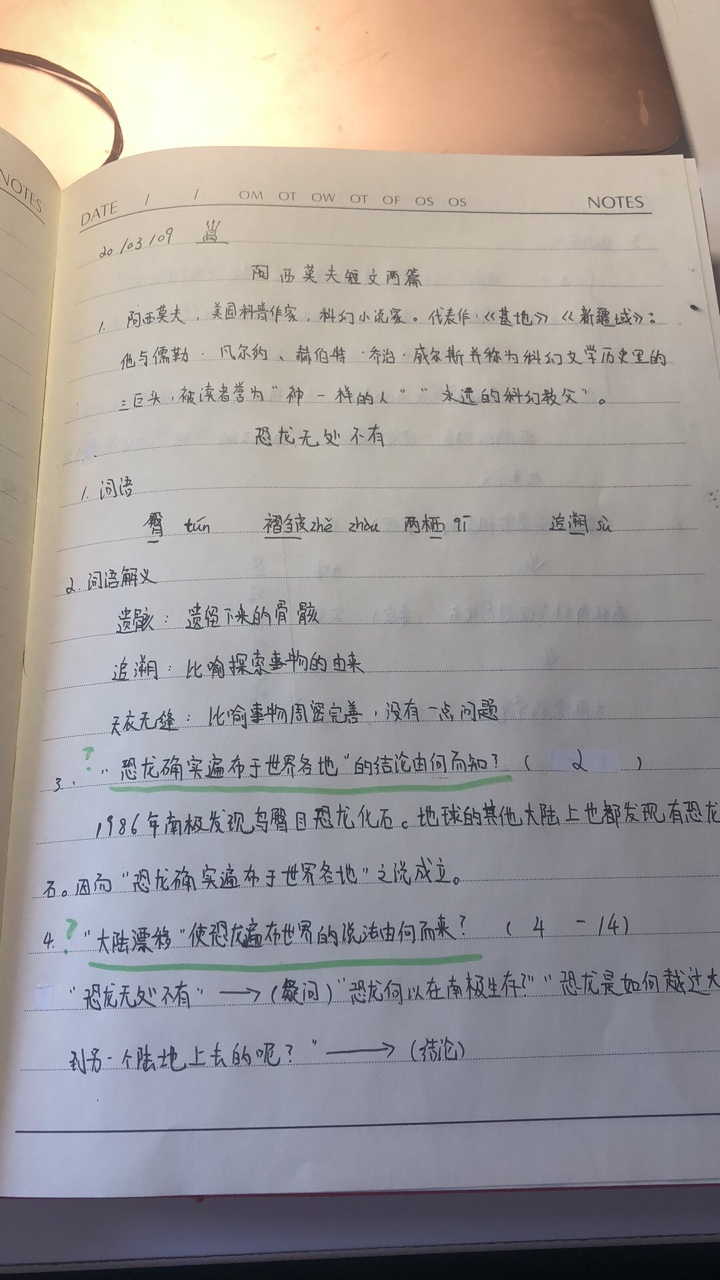 NOTES
DATE / / OM OT OW OT OF OS OS NOTES
20/03/09
阿西莫夫短文两篇
1. 阿西莫夫,美国科普作家,科幻小说家。代表作:《基地》《新疆域》;
他与儒勒·凡尔纳、赫伯特·乔治·威尔斯并称为科幻文学历史里的
三巨头,被读者誉为“神一样的人”“永远的科幻教父”。
恐龙无处不有
1. 词语
臀 tún 褶皱zhě zhòu 两栖 qī 追溯 sù
2. 词语解义
遗骸:遗留下来的骨骸
追溯:比喻探索事物的由来
天衣无缝:比喻事物周密完善,没有一点问题
3. ? “恐龙确实遍布于世界各地”的结论由何而知?( 2 )
1986年南极发现鸟臀目恐龙化石。地球的其他大陆上也都发现有恐龙
石。因而“恐龙确实遍布于世界各地”之说成立。
4. ? “大陆漂移”使恐龙遍布世界的说法由何而来?( 4 - 14)
“恐龙无处不有”→(疑问)“恐龙何以在南极生存?”“恐龙是如何越过大
到另一个陆地上去的呢?”→(结论)